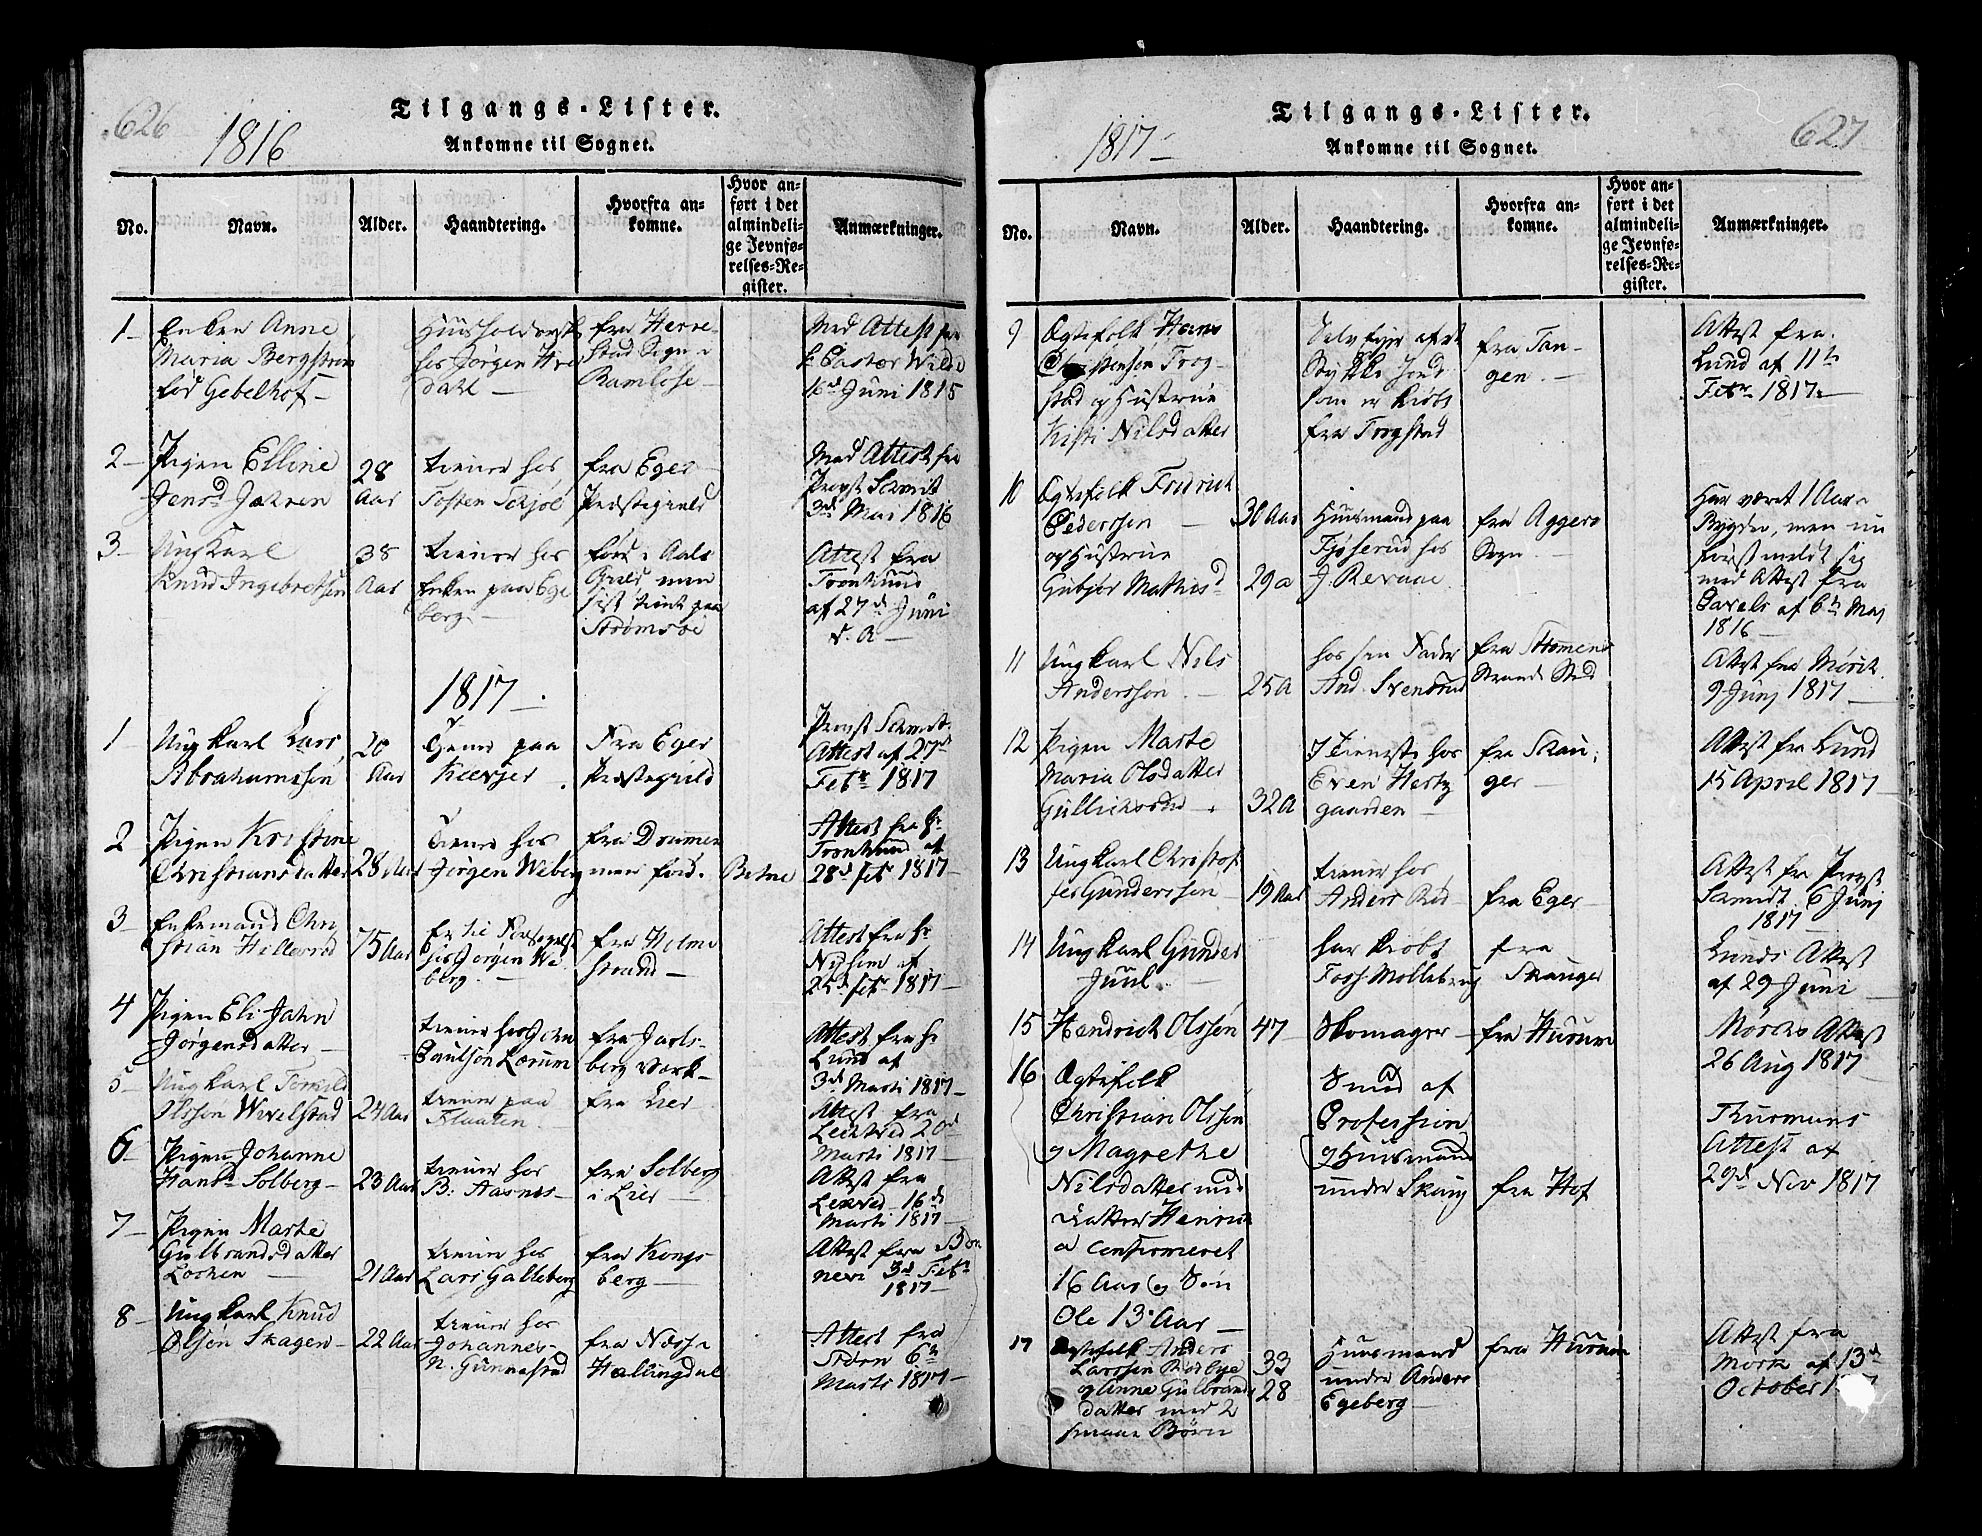 626
1816
Tilgangs-Lister.
Ankomne til Sognet.
No.
Navn.
Alder.
Haandtering.
Hvorfra an-
komne.
Hvor an-
ført i det
almindeli-
ge Jevnfø-
relses-Re-
gister.
Anmærkninger.
1
Enken Anne
Maria Bergstrøm
fød Gebelhof
hos Jørgen
fra Herre
Stad Sogn
Bamlose
Med Attest fra
Pastor Wilse
16d Juni 1815
2
Pigen Elline
Jensd Jahren
28
Aar
tiener hos
Tosten Schjøl
fra Eger
Præstegield
Med Attest fra
Provst Schmit
3d Mai 1816
3
Ungkarl
Knud Ingebretsen
38
Aar
tiener hos
Enken paa Ege
berg
fød i Aals
Gield, men
sist tient paa
Strømsøe
Attest fra
Tronhuus
af 27d Juni
1817
1
Ungkarl Lars
Abrahamssøn
20
Aar
Tiener paa
Kievjer
Fra Eger
Præstegield
Provst Schmit
Attest af 27d
Febr 1817
2
Pigen Kristine
Christiansdatter
28 Aar
Tiener hos
Jørgen Weberg
fra Drammen
men fød i
Botne
Attest fra Hr
af
28d Feb 1817
3
Enkemand Chri
stian Hillerød
75 Aar
Er til
hos Jørgen We
berg
fra Holme
strand
Attest fra Hr
af
25d febr 1817
4
Pigen Eli Jahn
Jørgensdatter
tiener hos John
Paulsøn Lørum
fra Jarls-
berg Værk
Attest fra Hr
Lund af
3d Marti 1817
5
Ungkarl
Olssøn Wivelstad
24 Aar
tiener paa
Flaaten
fra Lier
Attest fra
20d
Marti 1817
6
Pigen Johanne
Hansd Solberg
23 Aar
tiener hos
B. Aasnes
fra Solberg
i Lier
Attest fra
16d
Marti 1817
7
Pigen Marte
Gulbrandsdatter
Lochen
21 Aar
tiener hos
Lars Galleberg
fra Kongs
berg
Attest fra Bon
nevi 3d Febr
1817
8
Ungkarl Knud
Olsøn Skagen
22 Aar
tiener hos
Johannes
N. Gunnestad
fra Næss i
Hallingdal
Attest fra
6d
Marti 1817
1817
Tilgangs-Lister.
Ankomne til Sognet.
627
No.
Navn.
Alder.
Haandtering.
Hvorfra an-
komne.
Hvor an-
ført i det
almindeli-
ge Jevnfø-
relses-Re-
gister.
Anmærkninger.
9
Ægtefolk Hans
Christensøn Trog-
stad og Hustrue
Kisti Nilsdatter
Selvejer af et
Stykke Jord
som er kiøbt
fra Trogstad
fra Tan-
gen
Attest fra
Lund af 11te
Febr 1817
10
Ægtefolk Fridrich
Pederssøn
og Hustrue
Gubjør Mathisd
30 Aar
29 a
Huusmand paa
Tjøserud hos
J. Revaae
fra Aggers
Sogn
Har været 1 Aar i
Bygden, men nu
først meldt sig
med Attest fra
Pavels af 6te Maj
1816
11
Ungkarl Nils
Anderssøn
25 a
hos sin Fader
And. Svensrud
fra
Strands Sted
Attest fra Mørch
9 Junj 1817
12
Pigen Marte
Maria Olsdatter
Gullichsrud
32 a
I Tieneste hos
Even Hertz
gaarden
fra Skau-
ger
Attest fra Lund
15 April 1817
13
Ungkarl Christof
fer Gunderssøn
19 Aar
tiener hos
Anders Rød
fra Eger
Attest fra Provst
Schmidt 6 Junj
1817
14
Ungkarl Gunder
Juul
har kiøbt
Foss Mollebrug
fra
Skauger
Lunds Attest
af 29 Juni
15
Hendrich Olssøn
47
Skomager
fra Hurum
Mørchs Attest
26 Aug 1817
16
Ægtefolk
Christian Olssøn
og Magrethe
Nilsdatter med
Datter Henric
a confirmeret
16 Aar og Søn
Ole 13 Aar
Smed af
Profession
og Huusmand
under Skaug
fra Hof
Thurmans
Attest af
29d Nov 1817
17
Ægtefolk Anders
Larssøn Rødbye
og Anne Gulbrands
datter med 2
smaae Børn
33
28
Huusmand
under Anders
Egeberg
fra Hurum
Attest fra
Mørch af 13d
October